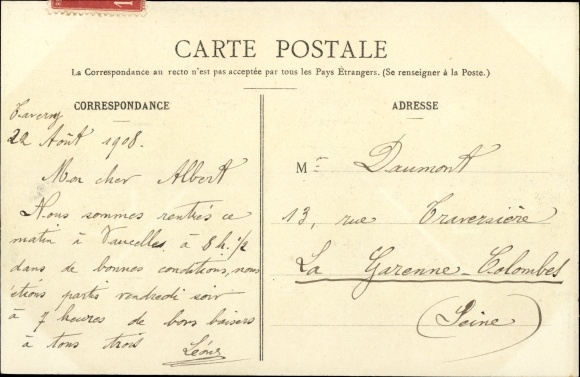 CARTE POSTALE
La Correspondance au recto n'est pas acceptée par tous les Pays Étrangers. (Se renseigner à la Poste.)
CORRESPONDANCE
Taverny
22 Août 1908.
Mon cher Albert
Nous sommes rentrés ce
matin à Vaucelles à 8 h. 1/2
dans de bonnes conditions, nous
étions partis vendredi soir
à 7 heures de bons baisers
à tous trois
ADRESSE
Mr Daumont
13, rue Traversière
La Garenne-Colombes
Seine